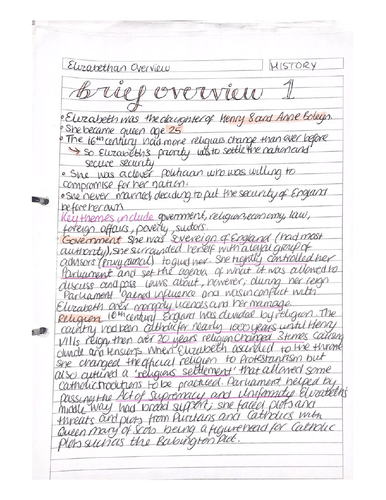 Elizabethan Overview
HISTORY
brief overview 1
• Elizabeth was the daughter of Henry 8 and Anne Boleyn.
• She became queen age 25
• The 16th century had more religious change than ever before
→ So Elizabeth's priority was to settle the nation and
secure security
• She was a clever politician who was willing to
compromise for her nation.
• She never married, deciding to put the security of England
before her own
Key themes include government, religion, economy, law,
foreign affairs, poverty, suitors.
Government She was sovereign of England (had most
authority), she surrounded herself with a loyal group of
advisors (privy council) to guide her. She tightly controlled her
Parliament and set the agenda of what it was allowed to
discuss and pass laws about, however, during her reign
Parliament gained influence and was in conflict with
Elizabeth over monopoly licences and her marriage.
Religion 16th century England was divided by religion. The
country had been catholic for nearly 1000 years until Henry
VIIIs reign, then over 20 years religion changed 3 times causing
divide and tensions. When Elizabeth ascended to the throne
she changed the official religion to Protestantism but
also outlined a 'religious settlement' that allowed some
Catholic traditions to be practised. Parliament helped by
passing the Act of Supremacy and Uniformity. Elizabeth's
middle way had broad support, she faced plots and
threats and plots from Puritans and Catholics with
Queen Mary of Scots being a figurehead for Catholic
plots such as the Babington Plot.